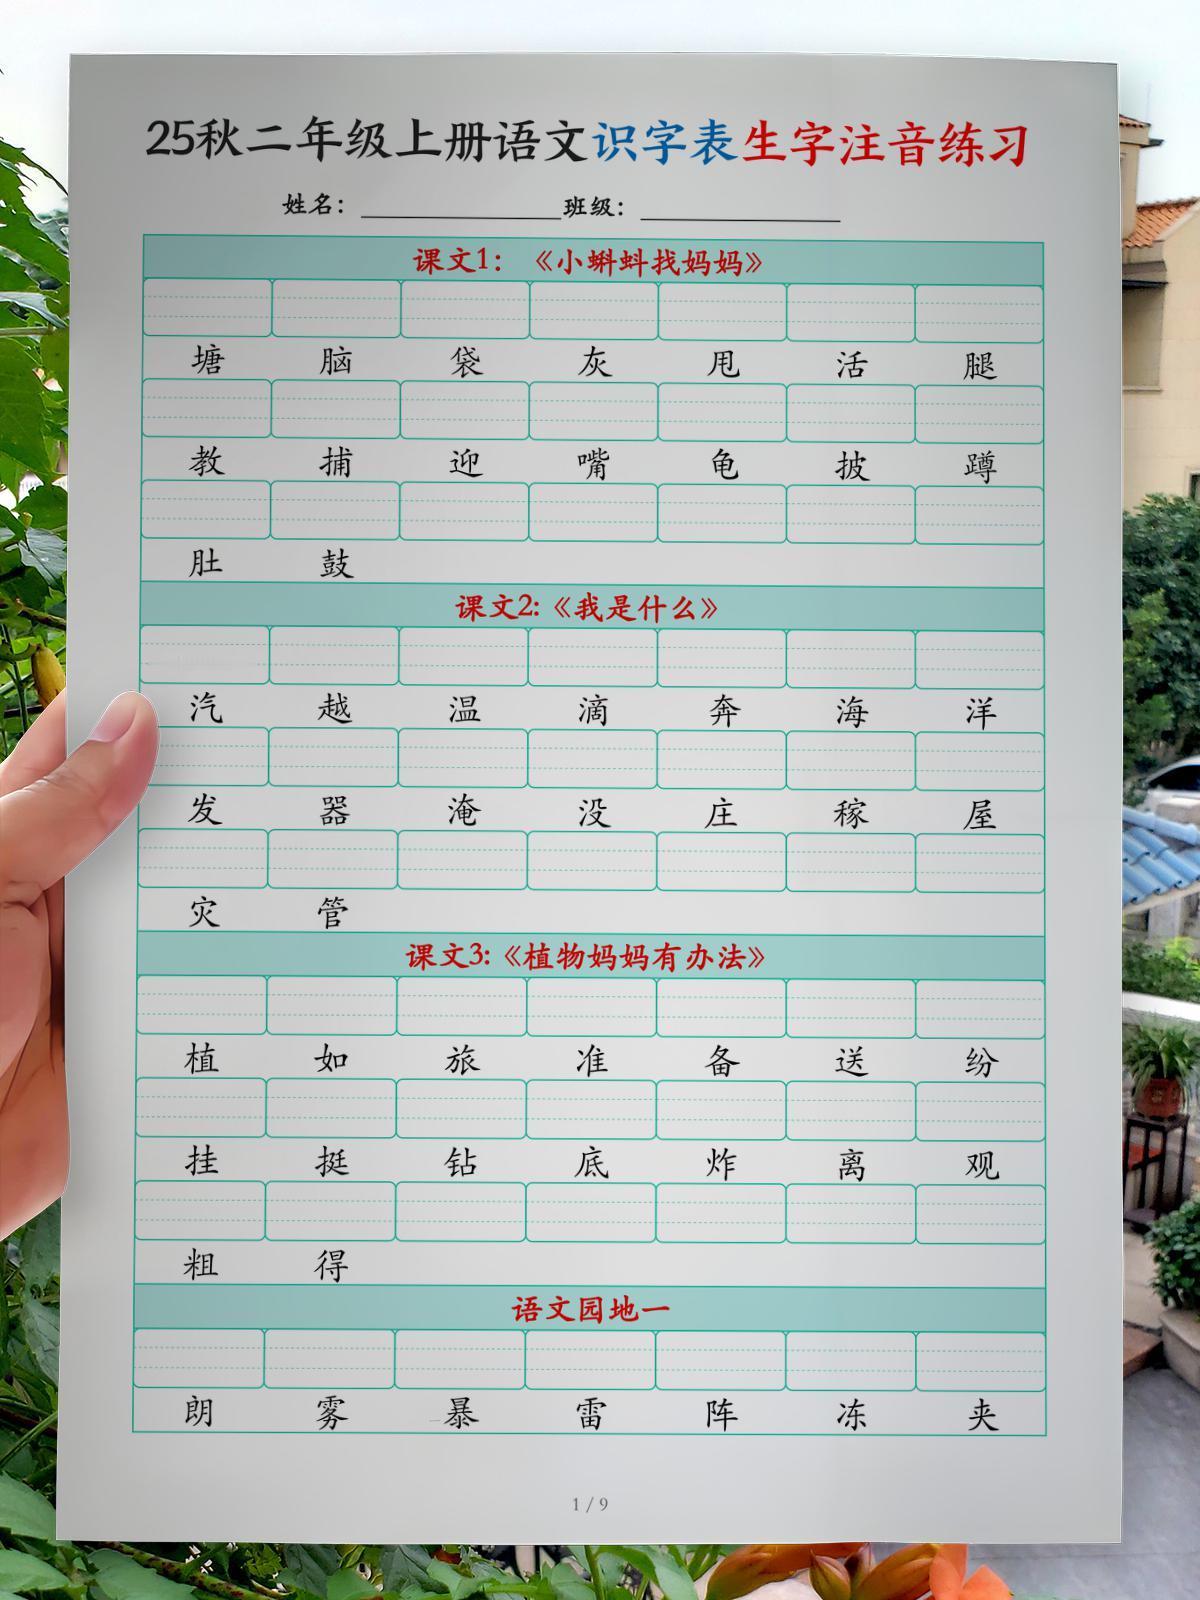 25秋二年级上册语文识字表生字注音练习
姓名： 班级：
课文1：《小蝌蚪找妈妈》
塘 脑 袋 灰 甩 活 腿
教 捕 迎 嘴 龟 披 蹲
肚 鼓
课文2:《我是什么》
汽 越 温 滴 奔 海 洋
发 器 淹 没 庄 稼 屋
灾 管
课文3:《植物妈妈有办法》
植 如 旅 准 备 送 纷
挂 挺 钻 底 炸 离 观
粗 得
语文园地一
朗 雾 暴 雷 阵 冻 夹
1 / 9